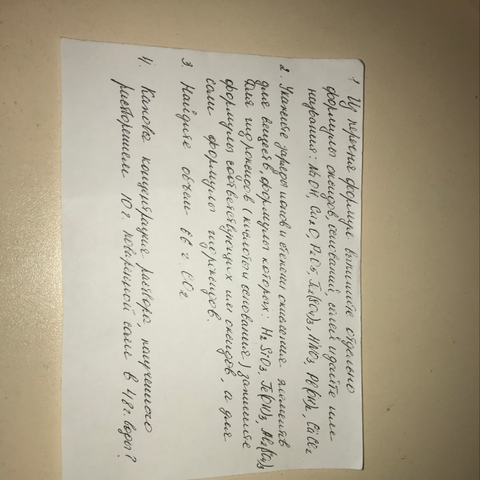 1 Из перечня формул выпишите отдельно
формулы оксидов, оснований, солей и дайте им
названия: NaOH, Cu2O, P2O5, Fe2(SO4)3, HNO3, CaCl2
2. Укажите заряды ионов и степени окисления элементов
для веществ, формулы которых: H2SiO3, Fe(OH)3,
Для гидроксидов (кислоты и основания) запишите
формулы соответствующих им оксидов, а для
соли формулы гидроксидов.
3 Найдите объем 66 г. CO2
4. Какова концентрация раствора, полученного
растворением 10 г. поваренной соли в 48 г. воды?